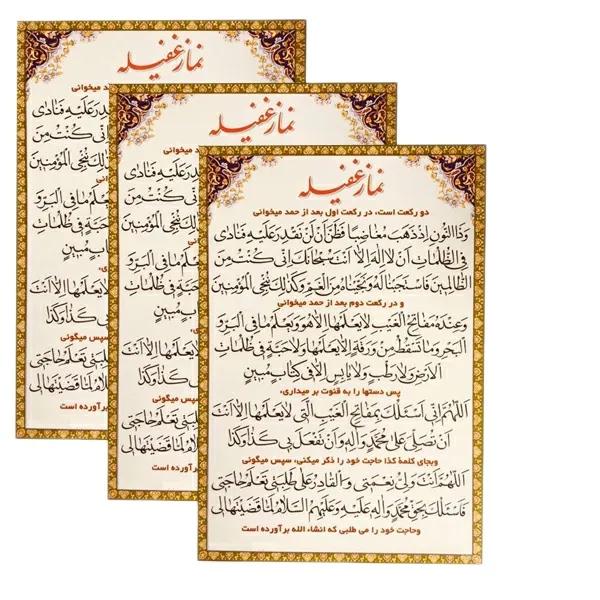 نماز غفیله
دو رکعت است، در رکعت اول بعد از حمد میخوانی
وَذَا النُّونِ إِذْ ذَهَبَ مُغَاضِبًا فَظَنَّ أَنْ لَنْ نَقْدِرَ عَلَيْهِ فَنَادَى
فِي الظُّلُمَاتِ أَنْ لَا إِلَهَ إِلَّا أَنْتَ سُبْحَانَكَ إِنِّي كُنْتُ مِنَ
الظَّالِمِينَ فَاسْتَجَبْنَا لَهُ وَنَجَّيْنَاهُ مِنَ الْغَمِّ وَكَذَلِكَ نُنْجِي الْمُؤْمِنِينَ
و در رکعت دوم بعد از حمد میخوانی
وَعِنْدَهُ مَفَاتِحُ الْغَيْبِ لَا يَعْلَمُهَا إِلَّا هُوَ وَيَعْلَمُ مَا فِي الْبَرِّ وَ
الْبَحْرِ وَمَا تَسْقُطُ مِنْ وَرَقَةٍ إِلَّا يَعْلَمُهَا وَلَا حَبَّةٍ فِي ظُلُمَاتِ
الْأَرْضِ وَلَا رَطْبٍ وَلَا يَابِسٍ إِلَّا فِي كِتَابٍ مُبِينٍ
پس دستها را به قنوت بر میداری،
اللَّهُمَّ إِنِّي أَسْئَلُكَ بِمَفَاتِحِ الْغَيْبِ الَّتِي لَا يَعْلَمُهَا إِلَّا أَنْتَ
أَنْ تُصَلِّيَ عَلَى مُحَمَّدٍ وَآلِهِ وَأَنْ تَفْعَلَ بِي كَذَا وَكَذَا
وبجای کلمهٔ کذا حاجت خود را ذکر میکنی، سپس میگونی
اللَّهُمَّ أَنْتَ وَلِيُّ نِعْمَتِي وَالْقَادِرُ عَلَى طَلِبَتِي تَعْلَمُ حَاجَتِي
فَاَسْئَلُكَ بِحَقِّ مُحَمَّدٍ وَآلِهِ عَلَيْهِ وَعَلَيْهِمُ السَّلَامُ لَمَّا قَضَيْتَهَا لِي
وحاجت خود را می طلبی که انشاء الله برآورده است